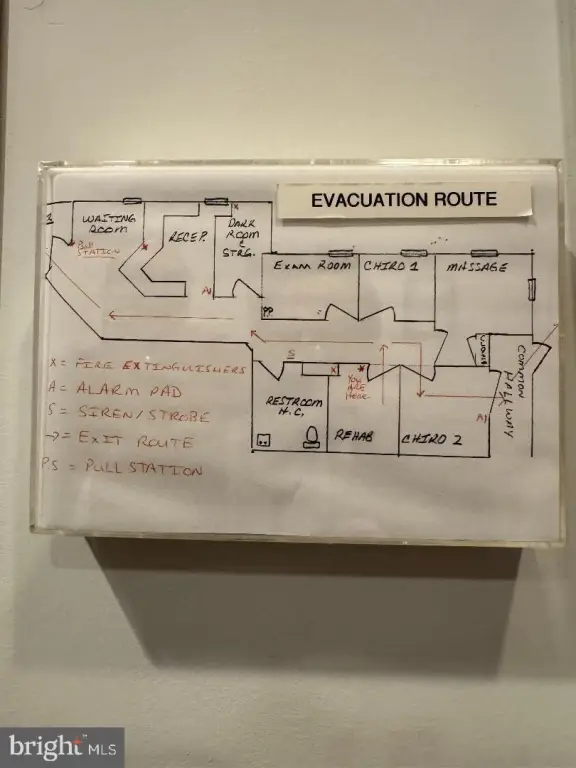 EVACUATION ROUTE
WAITING
ROOM
Pull
STATION
RECEP.
X
DARK
ROOM
&
STRG.
EXAM ROOM
CHIRO 1
MASSAGE
A
PP
S
X
YOU
ARE
HERE.
RESTROOM
H.C.
REHAB
CHIRO 2
A
COMMON
HALLWAY
X = FIRE EXTINGUISHERS
A = ALARM PAD
S = SIREN/STROBE
→ = EXIT ROUTE
P.S = PULL STATION
bright MLS